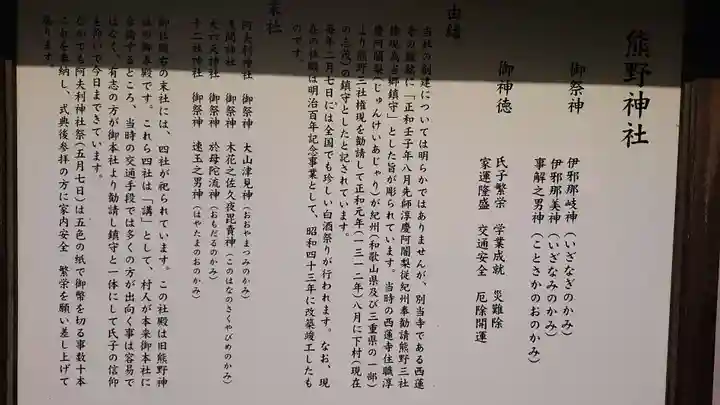 熊野神社
御祭神 伊邪那岐神（いざなぎのかみ）
伊邪那美神（いざなみのかみ）
事解之男神（ことさかのおのかみ）
御神徳 氏子繁栄 学業成就 災難除
家運隆盛 交通安全 厄除開運
由緒
当社の創建については明らかではありませんが、別当寺である西蓮
寺の鐘銘に「正和壬子年八月先師淳慶阿闍梨従紀州奉勧請熊野三社
権現為当郷鎮守」とした旨が彫られています。当時の西蓮寺住職淳
慶阿闍梨（じゅんけいあじゃり）が紀州（和歌山県及び三重県の一部）
より熊野三社権現を勧請して正和元年（一三一二年）八月に下村（現在
の志茂）の鎮守としたと記されています。
毎年二月七日には全国でも珍しい白酒祭りが行われます。なお、現
在の社殿は明治百年記念事業として、昭和四十三年に改築竣工したも
のです。
末社
阿夫利神社 御祭神 大山津見神（おおやまつみのかみ）
浅間神社 御祭神 木花之佐久夜毘売神（このはなのさくやびめのかみ）
大六天神社 御祭神 於母陀流神（おもだるのかみ）
十二社神社 御祭神 速玉之男神（はやたまのおのかみ）
御社殿右の末社には、四社が祀られています。この社殿は旧熊野神
社の御本殿です。これら四社は「講」として、村人が本来御本社に
参詣するところ、当時の交通手段では多くの方が出向く事は容易で
はなく、有志の方が御本社より勧請し鎮守と一体にして氏子の信仰
を仰いで今日まできています。
なかでも阿夫利神社祭（五月七日）は五色の紙で御幣を切る事数十本
これを奉納し、式典後参拝の方に家内安全 繁栄を願い差し上げて
居ります。